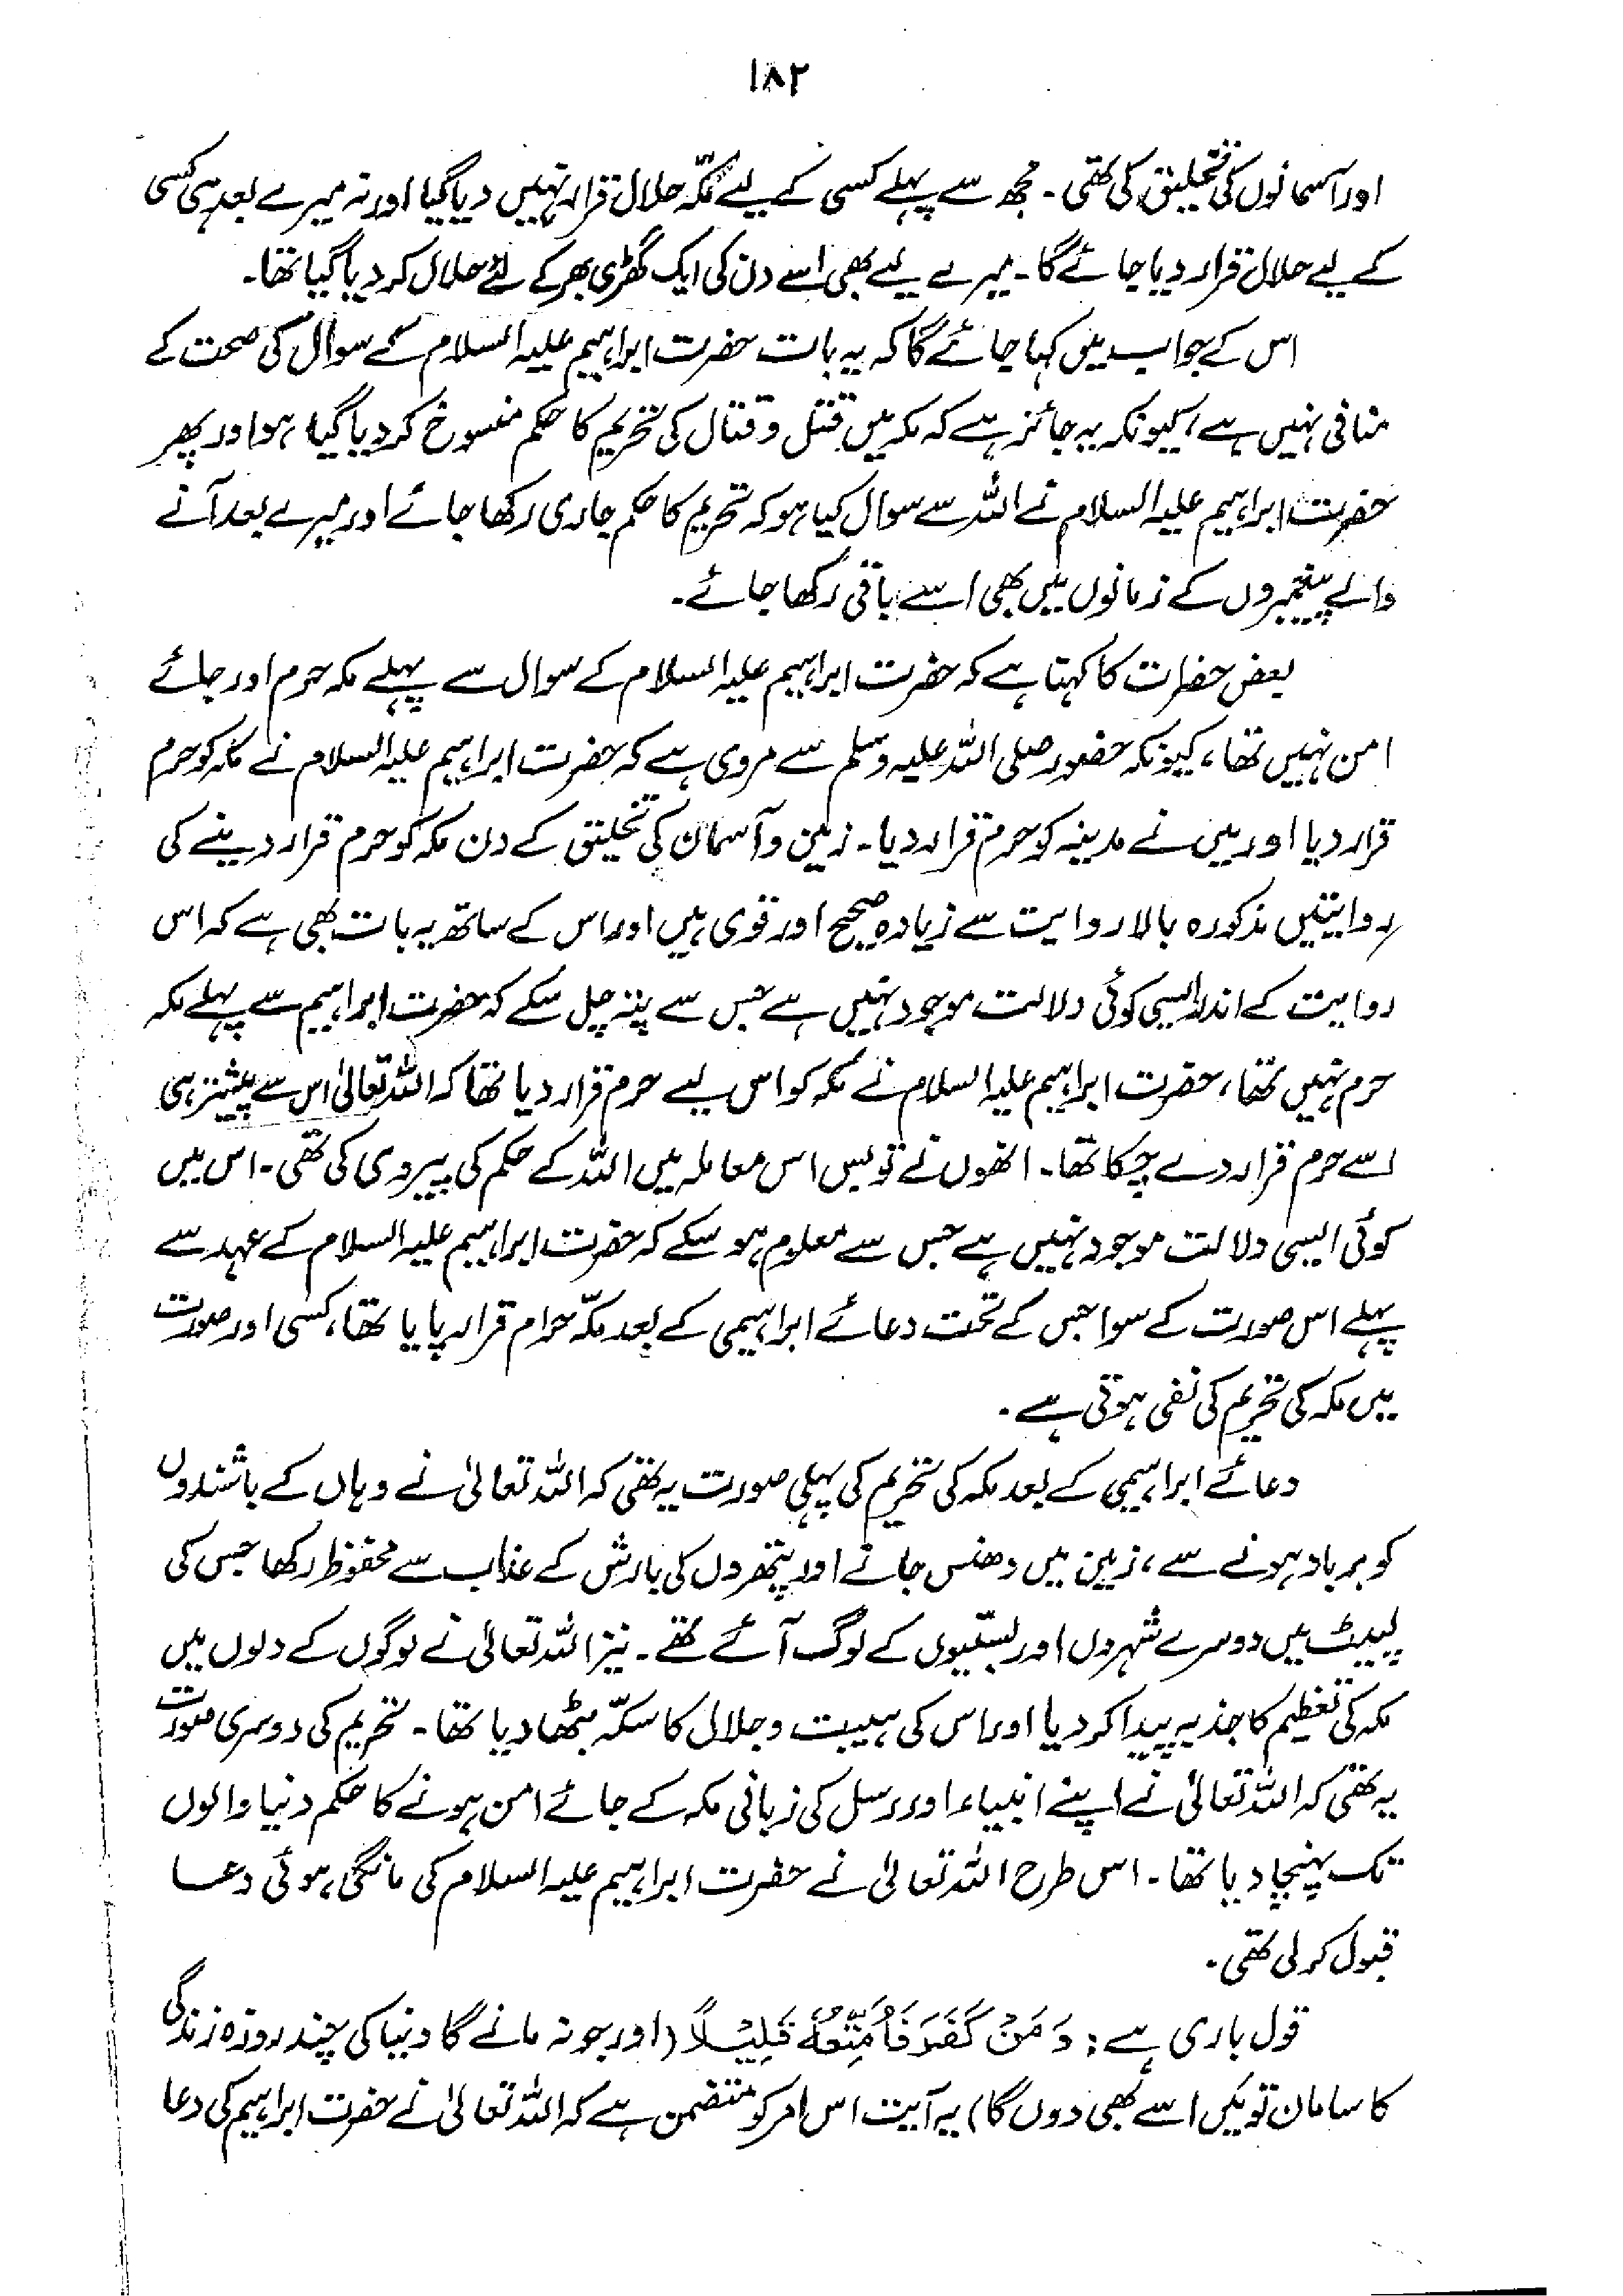 ۱۸۲
اور آسمانوں کی تخلیق کی تھی۔ مجھ سے پہلے کسی کے لیے مکّہ حلال قرار نہیں دیا گیا اور نہ میرے بعد ہی کسی
کے لیے حلال قرار دیا جائے گا۔ میرے لیے بھی اسے دن کی ایک گھڑی بھر کے لئے حلال کر دیا گیا تھا۔
اس کے جواب میں کہا جائے گا کہ یہ بات حضرت ابراہیم علیہ السلام کے سوال کی صحت کے
منافی نہیں ہے، کیونکہ یہ جائز ہے کہ مکہ میں قتل و قتال کی تحریم کا حکم منسوخ کر دیا گیا ہو اور پھر
حضرت ابراہیم علیہ السلام نے اللہ سے سوال کیا ہو کہ تحریم کا حکم جاری رکھا جائے اور میرے بعد آنے
والے پیغمبروں کے زمانوں میں بھی اسے باقی رکھا جائے۔
بعض حضرات کا کہنا ہے کہ حضرت ابراہیم علیہ السلام کے سوال سے پہلے مکہ حرم اور جائے
امن نہیں تھا، کیونکہ حضور صلی اللہ علیہ وسلم سے مروی ہے کہ حضرت ابراہیم علیہ السلام نے مکہ کو حرم
قرار دیا اور میں نے مدینہ کو حرم قرار دیا۔ زمین و آسمان کی تخلیق کے دن مکہ کو حرم قرار دینے کی
روایتیں مذکورہ بالا روایت سے زیادہ صحیح اور قوی ہیں اور اس کے ساتھ یہ بات بھی ہے کہ اس
روایت کے اندر ایسی کوئی دلالت موجود نہیں ہے جس سے پتہ چل سکے کہ حضرت ابراہیم سے پہلے مکہ
حرم نہیں تھا، حضرت ابراہیم علیہ السلام نے مکہ کو اس لیے حرم قرار دیا تھا کہ اللہ تعالیٰ اس سے پیشتر ہی
اسے حرم قرار دے چکا تھا۔ انھوں نے تو بس اس معاملہ میں اللہ کے حکم کی پیروی کی تھی۔ اس میں
کوئی ایسی دلالت موجود نہیں ہے جس سے معلوم ہو سکے کہ حضرت ابراہیم علیہ السلام کے عہد سے
پہلے اس صورت کے سوا جس کے تحت دعائے ابراہیمی کے بعد مکّہ حرام قرار پایا تھا، کسی اور صورت
میں مکہ کی تحریم کی نفی ہوتی ہے۔
دعائے ابراہیمی کے بعد مکہ کی تحریم کی پہلی صورت یہ تھی کہ اللہ تعالیٰ نے وہاں کے باشندوں
کو برباد ہونے سے، زمین میں دھنس جانے اور پتھروں کی بارش کے عذاب سے محفوظ رکھا جس کی
لپیٹ میں دوسرے شہروں اور بستیوں کے لوگ آئے تھے۔ نیز اللہ تعالیٰ نے لوگوں کے دلوں میں
مکہ کی تعظیم کا جذبہ پیدا کر دیا اور اس کی ہیبت و جلال کا سکّہ بٹھا دیا تھا۔ تحریم کی دوسری صورت
یہ تھی کہ اللہ تعالیٰ نے اپنے انبیاء اور رسل کی زبانی مکہ کے جائے امن ہونے کا حکم دنیا والوں
تک پہنچا دیا تھا۔ اس طرح اللہ تعالیٰ نے حضرت ابراہیم علیہ السلام کی مانگی ہوئی دعا
قبول کر لی تھی۔
قول باری ہے: وَمَنْ كَفَرَ فَاُمَتِّعُهٗ قَلِيْلًا (اور جو نہ مانے گا دنیا کی چند روزہ زندگی
کا سامان تو میں اسے بھی دوں گا) یہ آیت اس امر کو متضمن ہے کہ اللہ تعالیٰ نے حضرت ابراہیم کی دعا